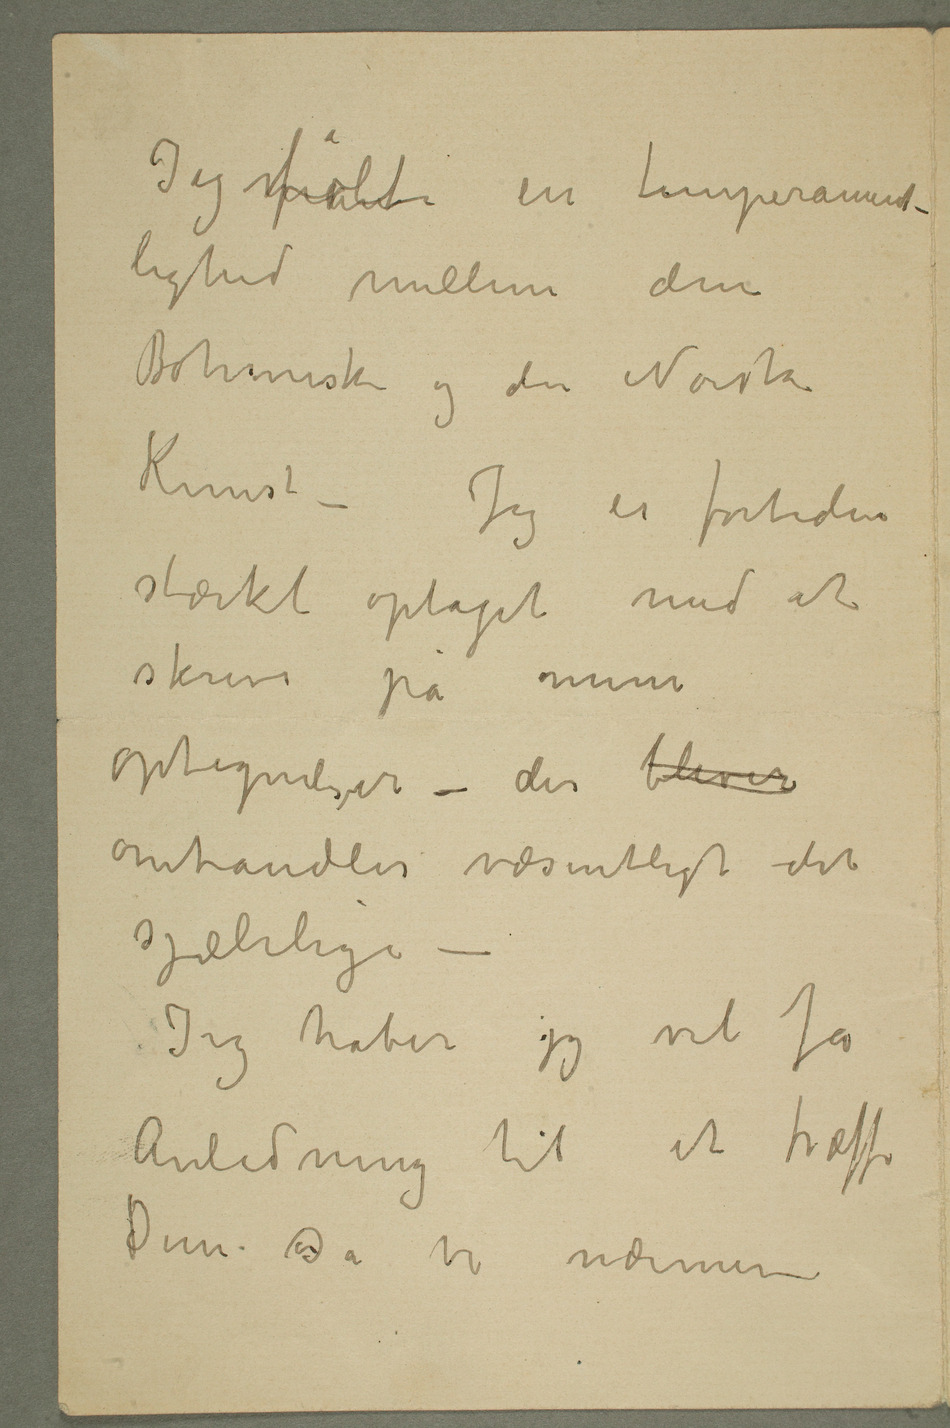 Jeg følte en temperament-
lighed mellem den
Bøhmiske og den Norske
Kunst – Jeg er fortiden
stærkt optaget med at
skrive på mine
optegnelser – der bliver
omhandler væsentligt det
sjælelige –
Jeg håber jeg vil få
Anledning til at træffe
Dem. Da vi nærmere